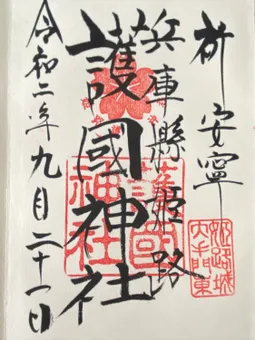 祈安寧
兵庫縣姫路
護國神社
令和二年九月二十一日
姫路城
大手門東
護國
神社